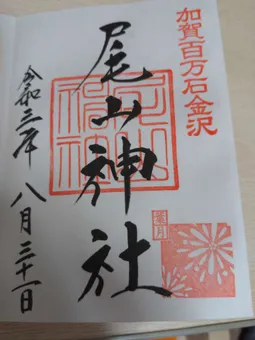 加賀百万石金沢
尾山神社
令和三年八月三十一日
葉月